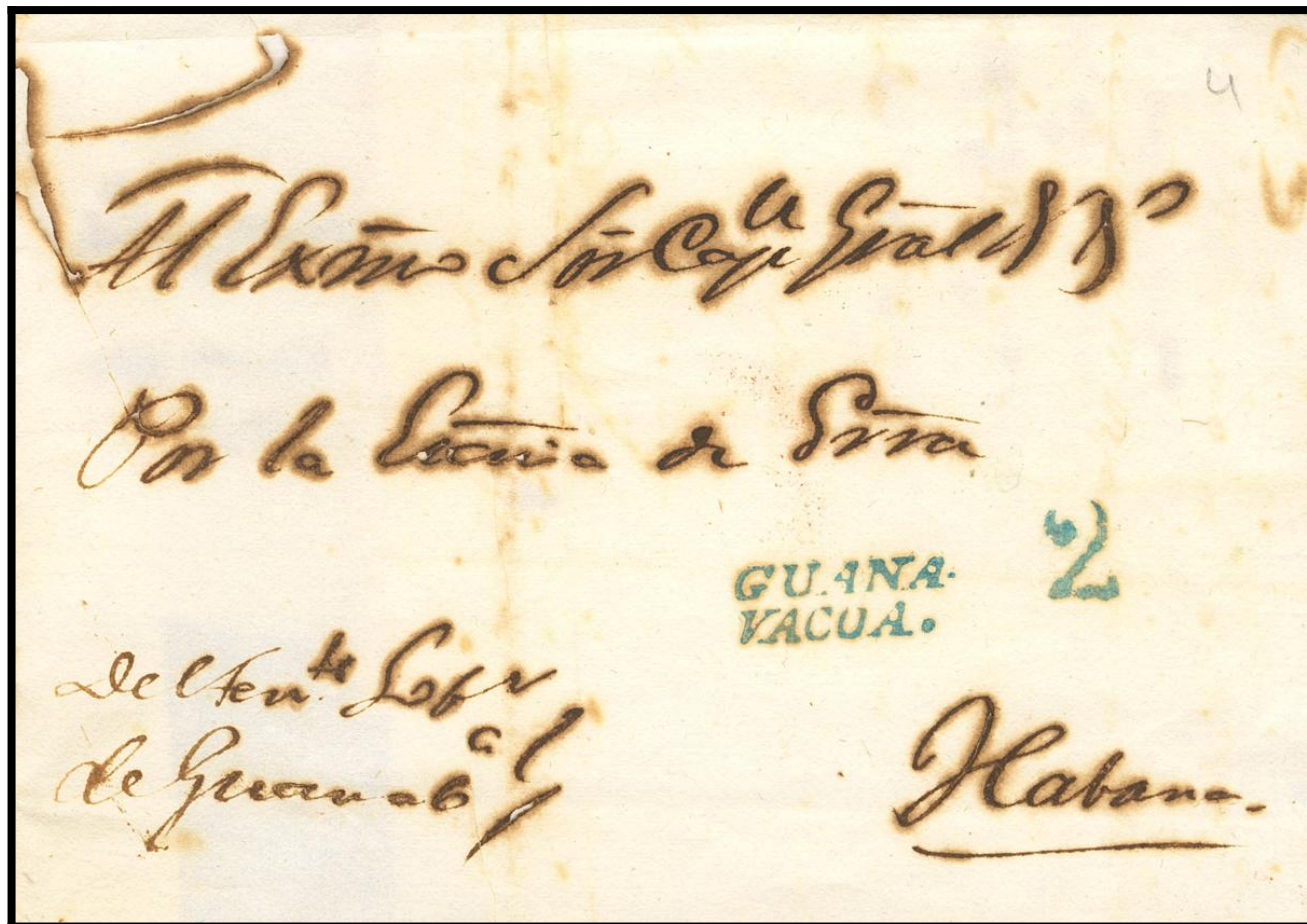 4
Al Exmo Sör Cap Gral
Por la de
GUANA-
VACUA.
2
Del Tente Gobr
de Guanaba
Habana.